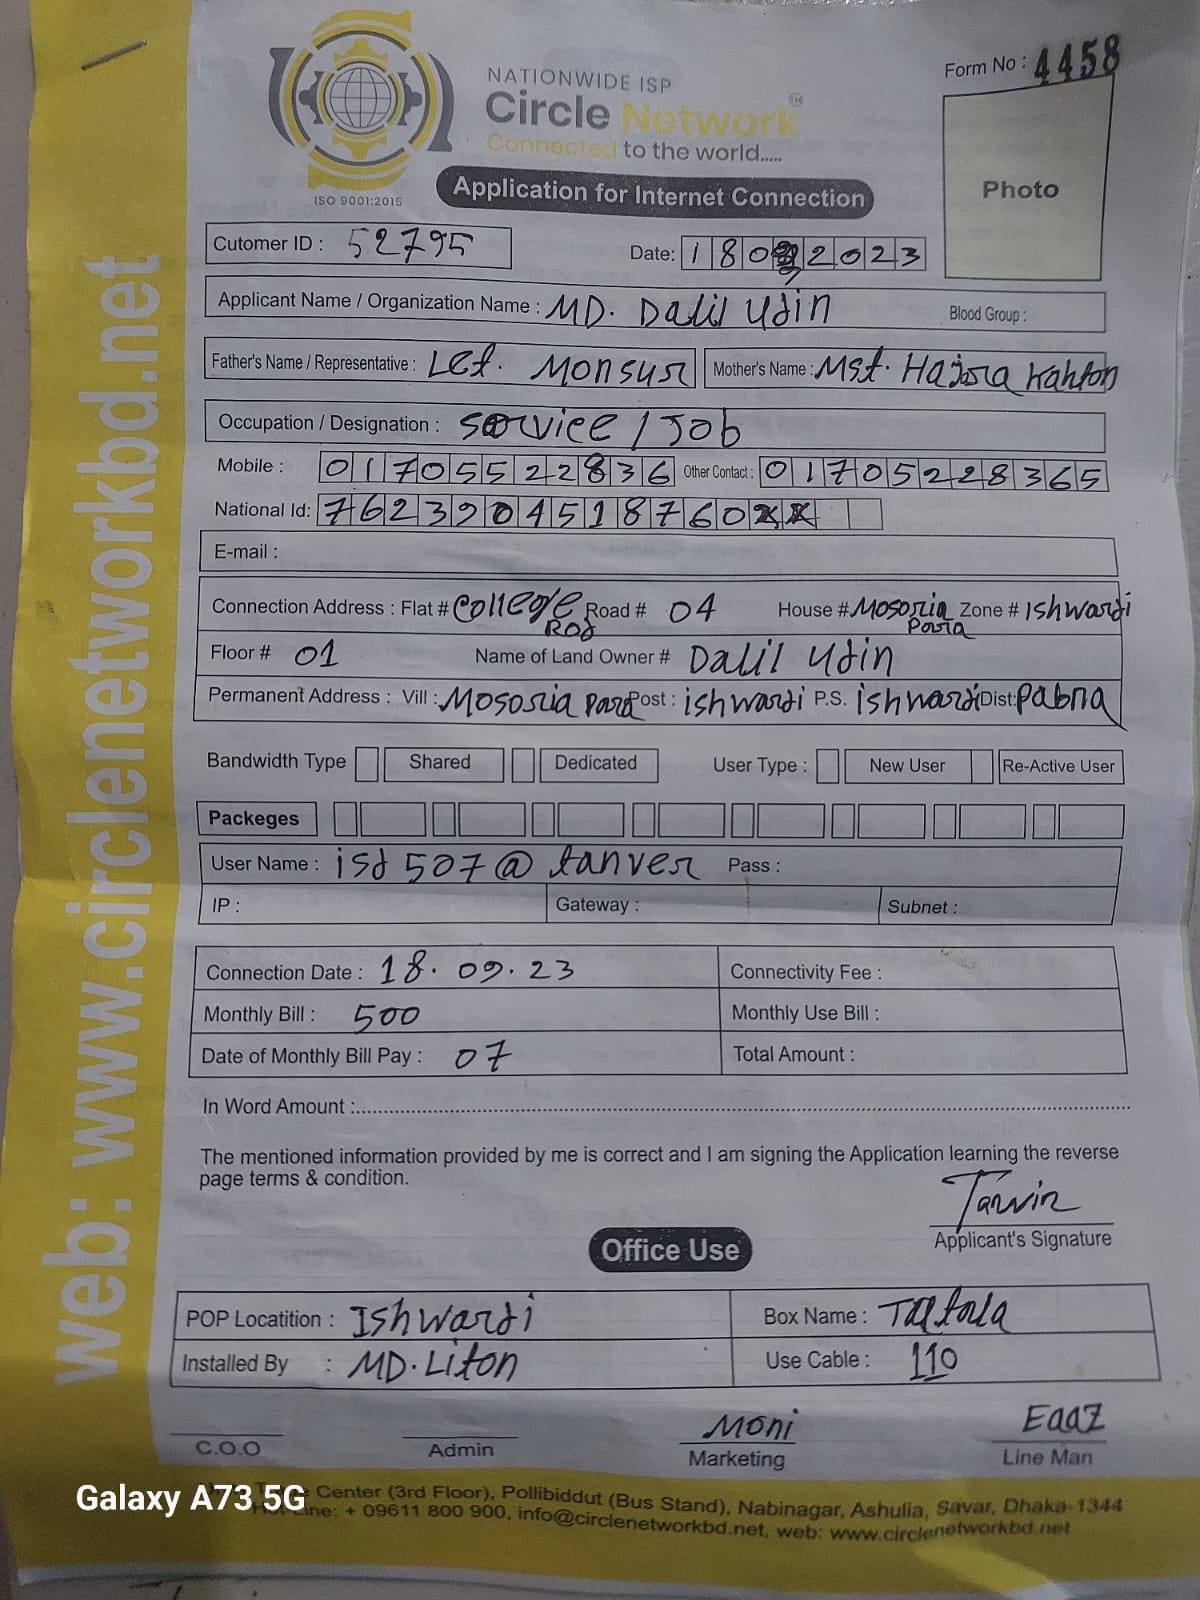 Form No : 4458
NATIONWIDE ISP
Circle Network™
Connected to the world.....
ISO 9001:2015
Photo
Application for Internet Connection
Cutomer ID : 52795 Date: 18092023
Applicant Name / Organization Name : MD. Dalil Udin Blood Group :
Father's Name / Representative : Let. Monsur Mother's Name : Mst. Hajora Kahton
Occupation / Designation : service / Job
Mobile : 01705522836 Other Contact : 01705228365
National Id: 7623904518760
E-mail :
Connection Address : Flat # College Rod Road # 04 House # Mosoria Para Zone # Ishwardi
Floor # 01 Name of Land Owner # Dalil Udin
Permanent Address : Vill : Mosoria Para Post : ishwardi P.S. ishwardi Dist: pabna
Bandwidth Type Shared Dedicated User Type : New User Re-Active User
Packeges
User Name : isd 507@tanver Pass :
IP : Gateway : Subnet :
Connection Date : 18. 09. 23 Connectivity Fee :
Monthly Bill : 500 Monthly Use Bill :
Date of Monthly Bill Pay : 07 Total Amount :
In Word Amount :
The mentioned information provided by me is correct and I am signing the Application learning the reverse
page terms & condition.
Applicant's Signature
Office Use
POP Locatition : Ishwardi Box Name : Taltola
Installed By : MD. Liton Use Cable : 110
Moni Eaaz
C.O.O Admin Marketing Line Man
Center (3rd Floor), Pollibiddut (Bus Stand), Nabinagar, Ashulia, Savar, Dhaka-1344
Hot Line: + 09611 800 900, info@circlenetworkbd.net, web: www.circlenetworkbd.net
web: www.circlenetworkbd.net
Galaxy A73 5G